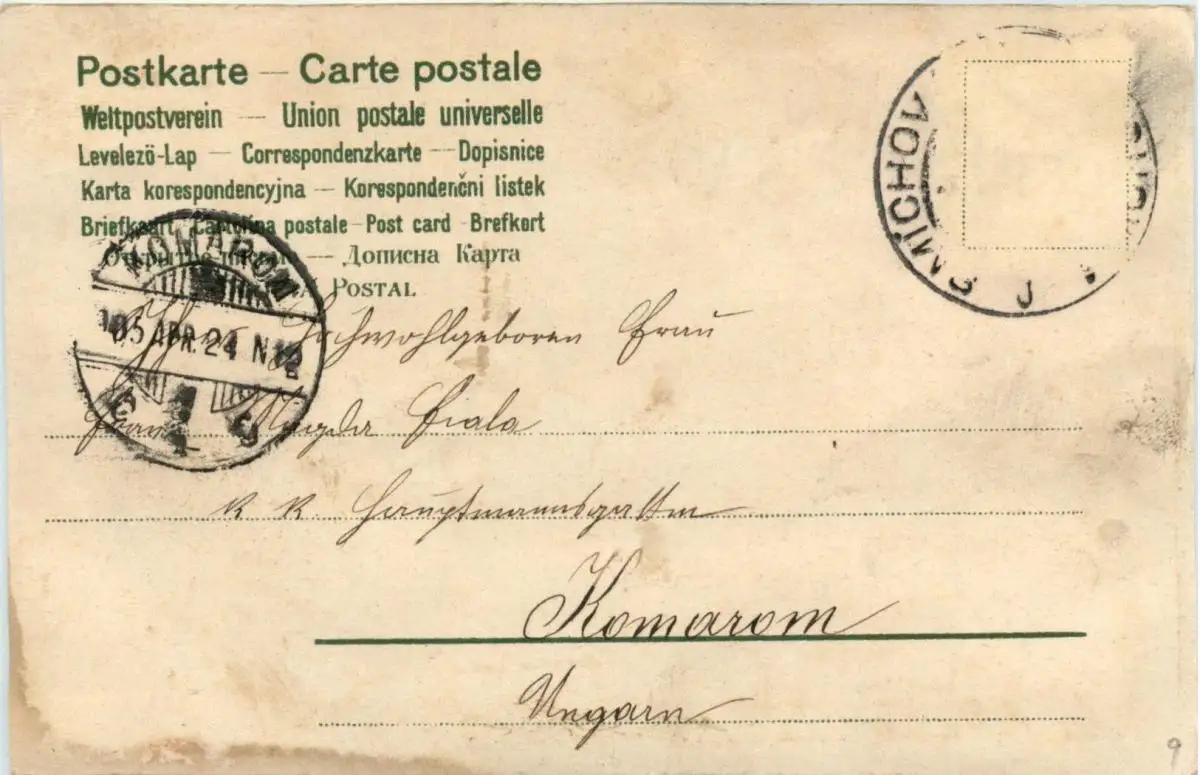 Postkarte — Carte postale
Weltpostverein — Union postale universelle
Levelezö-Lap — Correspondenzkarte — Dopisnice
Karta korespondencyjna — Korespondenčni listek
Briefkaart Cartolina postale - Post card - Brefkort
— Дописна Карта
POSTAL
SMÍCHOV
KOMÁROM
905 APR. 24 N12
Hochwohlgeboren Frau
Frau Magda Fiala
k k Hauptmannsgattin
Komarom
Ungarn
9